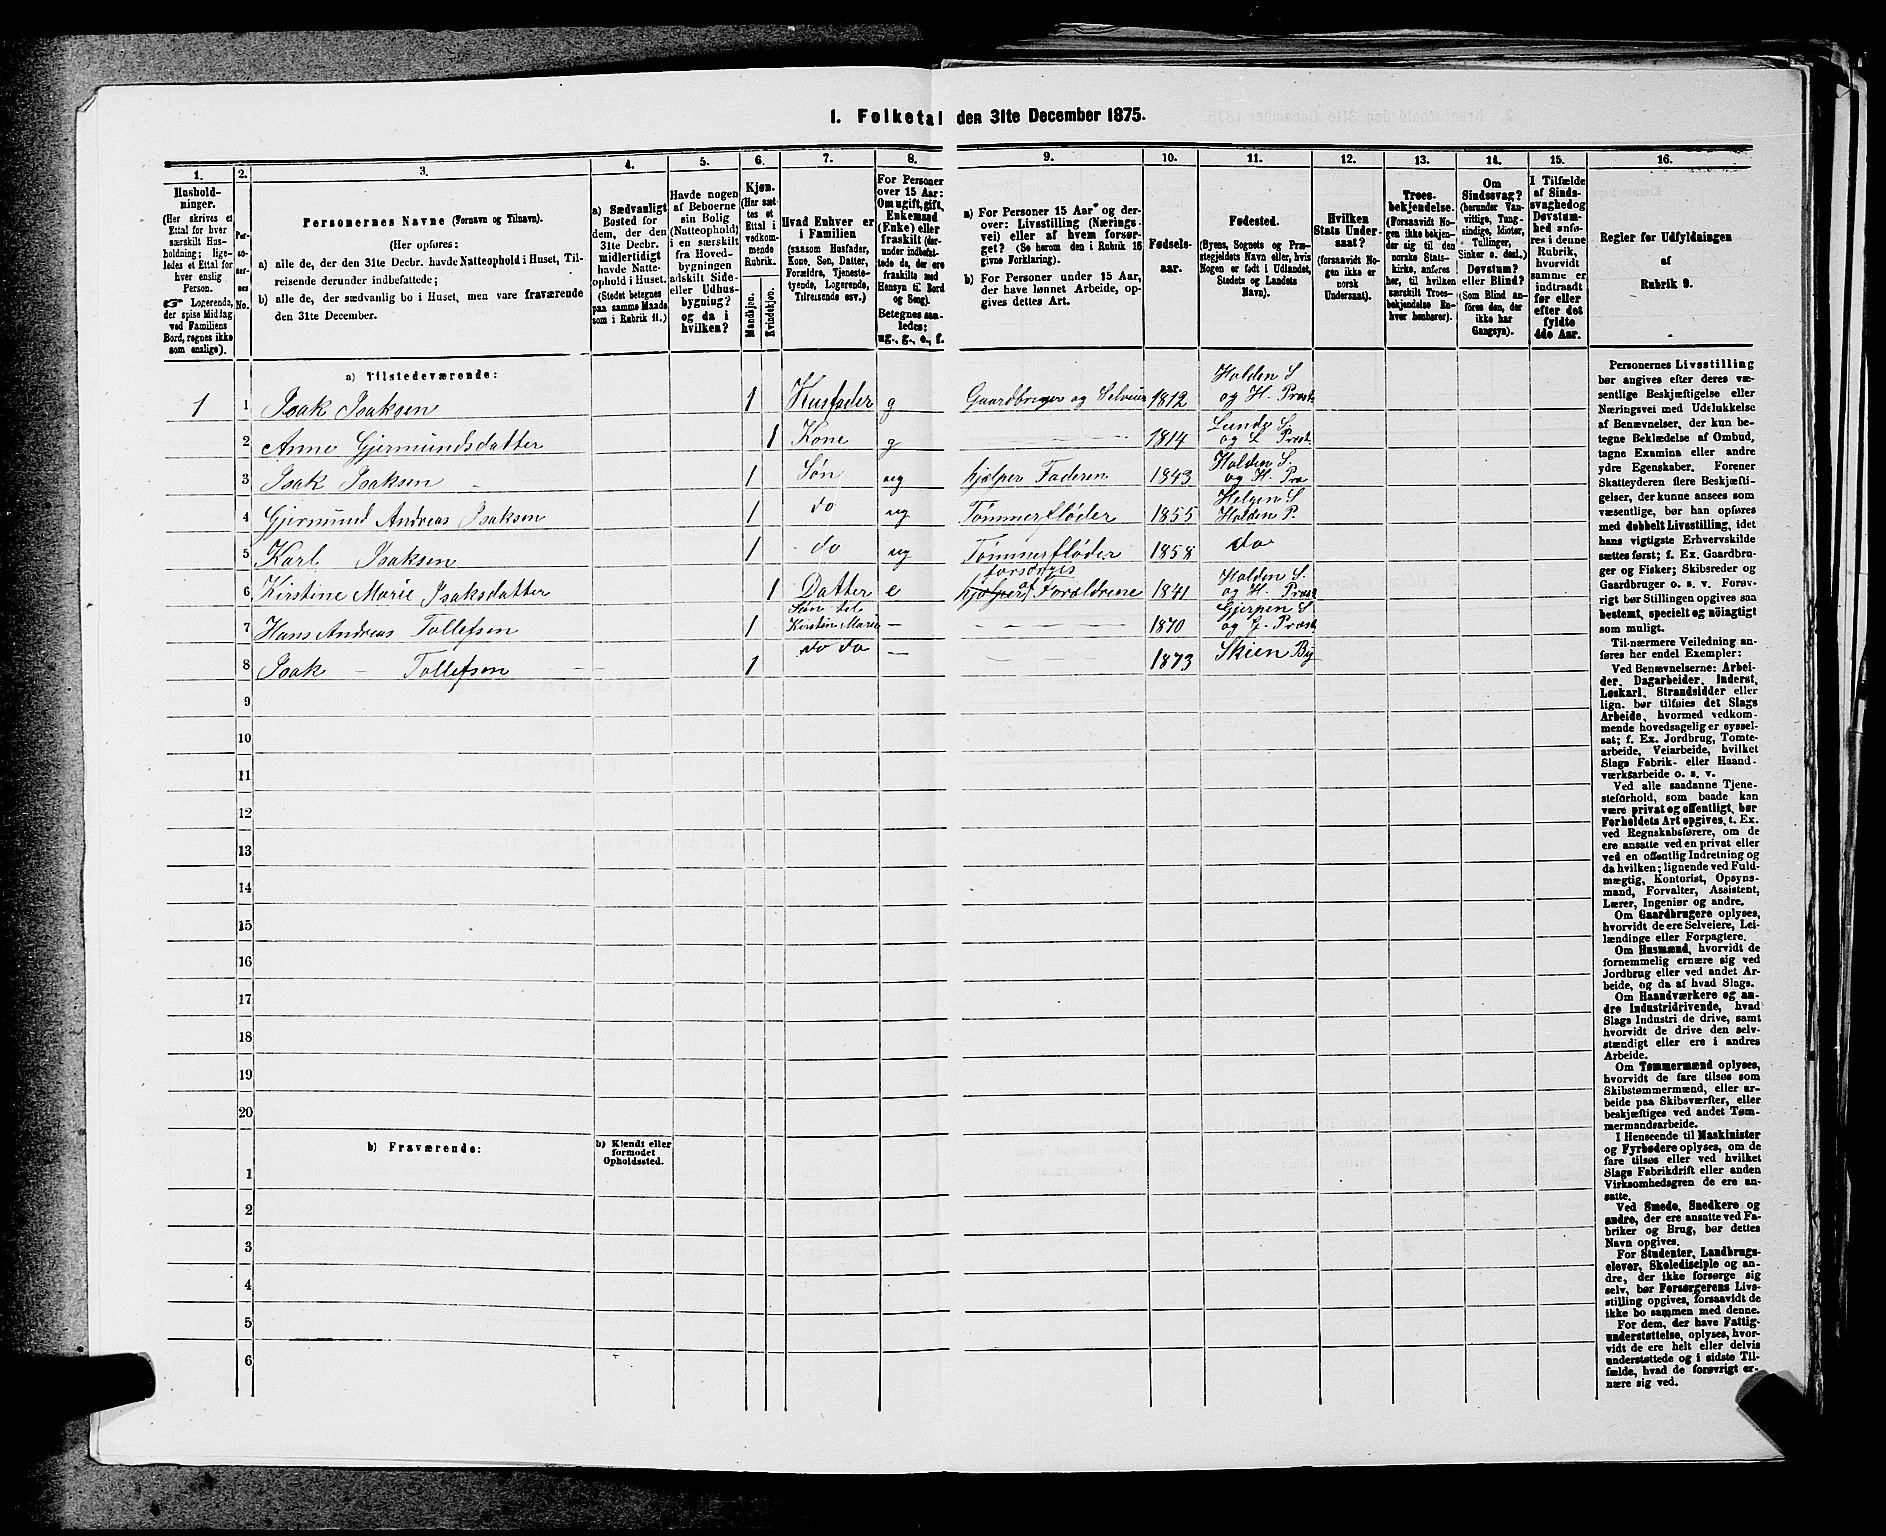 1. Folketal den 31te December 1875.
1.
Hushold-
ninger.
(Her skrives et
Ettal for hver
særskilt Hus-
holdning; lige-
ledes et Ettal for
hver enslig
Person.
☞ Logerende,
der spise Middag
ved Familiens
Bord, regnes ikke
som enslige).
2.
Per-
so-
ner-
nes
No.
3.
Personernes Navne (Fornavn og Tilnavn).
(Her opføres:
a) alle de, der den 31te Decbr. havde Natteophold i Huset, Til-
reisende derunder indbefattede;
b) alle de, der sædvanlig bo i Huset, men vare fraværende
den 31te December.
4.
a) Sædvanligt
Bosted for
dem, der den
31te Decbr.
midlertidigt
havde Natte-
ophold i Huset.
(Stedet betegnes
paa samme Maade
som i Rubrik 11.)
5.
Havde nogen
af Beboerne
sin Bolig
(Natteophold)
i en særskilt
fra Hoved-
bygningen
adskilt Side-
eller Udhus-
bygning?
og da i
hvilken?
6.
Kjøn.
(Her sæt-
tes et
Ettal i
vedkom-
mende
Rubrik.
Mandkjøn.
Kvindekjøn.
7.
Hvad Enhver er
i Familien
(saasom Husfader,
Kone, Søn, Datter,
Forældre, Tjeneste-
tyende, Logerende,
Tilreisende osv.)
8.
For Personer
over 15 Aar:
Om ugift, gift,
Enkemand
(Enke) eller
fraskilt (der-
under indbefat-
tede da, der ere
fraskilte med
Hensyn til Bord
og Seng).
Betegnes saa-
ledes:
ug., g., e., f.
9.
a) For Personer 15 Aar og der-
over: Livsstilling (Nærings-
vei) eller af hvem forsør-
get? (Se herom den i Rubrik 16
givne Forklaring).
b) For Personer under 15 Aar,
der have lønnet Arbeide, op-
gives dettes Art.
10.
Fødsels-
aar.
11.
Fødested.
(Byens, Sognets og Præ-
stegjeldets Navn eller, hvis
Nogen er født i Udlandet,
Stedets og Landets
Navn).
12.
Hvilken
Stats Under-
saat?
(forsaavidt No-
gen ikke er
norsk
Undersaat).
13.
Troes-
bekjendelse.
(Forsaavidt No-
gen ikke bekjen-
der sig til den
norske Stats-
kirke, anføres
her, til hvilken
særskilt Troes-
bekjendelse En-
hver henhører).
14.
Om
Sindssvag?
(herunder Van-
vittige, Tung-
sindige, Idioter,
Tullinger,
Sinker o. desl.)
Døvstum?
eller Blind?
(Som Blind an-
føres den, der
ikke har
Gangsyn).
15.
I Tilfælde
af Sinds-
svaghed og
Døvstum-
hed anfø-
res i denne
Rubrik,
hvorvidt
samme er
indtraadt
før eller
efter det
fyldte
4de Aar.
16.
Regler for Udfyldningen
af
Rubrik 9.
a) Tilstedeværende:
1 1 Isak Isaksen 1 Husfader g Gaardbruger og Selveier 1812 Holden S. og H. Præst
2 Anne Gjermundsdatter 1 Kone g — 1814 Lunde S. og L Præst
3 Isak Isaksen 1 Søn ug hjælper Faderen 1843 Holden S. og H. Præ
4 Gjermund Andreas Isaksen 1 do ug Tømmerfløder 1855 Helgen S Holden P.
5 Karl Isaksen 1 do ug Tømmerfløder 1858 do
6 Kirstine Marie Isaksdatter 1 Datter e forsørges af Forældrene 1841 Holden S. og H. Præst
7 Hans Andreas Tollefsen 1 Søn til Kirstine Marie — — 1870 Gjerpen S og G. Præst
8 Isak — Tollefsen 1 do do — — 1873 Skien By
9
10
11
12
13
14
15
16
17
18
19
20
b) Fraværende:
b) Kjendt eller
formodet
Opholdssted.
1
2
3
4
5
6
Personernes Livsstilling
bør angives efter deres væ-
sentlige Beskjæftigelse eller
Næringsvei med Udelukkelse
af Benævnelser, der kun be-
tegne Beklædelse af Ombud,
tagne Examina eller andre
ydre Egenskaber. Forener
Skatteyderen flere Beskjæfti-
gelser, der kunne ansees som
væsentlige, bør han opføres
med dobbelt Livsstilling, idet
hans vigtigste Erhvervskilde
sættes først; f. Ex. Gaardbru-
ger og Fisker; Skibsreder og
Gaardbruger o. s. v. Forøv-
rigt bør Stillingen opgives saa
bestemt, specielt og nöiagtigt
som muligt.
Til nærmere Veiledning an-
føres her endel Exempler:
Ved Benævnelserne: Arbei-
der, Dagarbeider, Inderst,
Løskarl, Strandsidder eller
lign. bør tilføies det Slags
Arbeide, hvormed vedkom-
mende hovedsagelig er syssel-
sat; f. Ex. Jordbrug, Tomte-
arbeide, Veiarbeide, hvilket
Slags Fabrik- eller Haand-
værksarbeide o. s. v.
Ved alle saadanne Tjene-
steforhold, som baade kan
være privat og offentligt, bør
Forholdets Art opgives, t. Ex.
ved Regnskabsførere, om de
ere ansatte ved en privat eller
ved en offentlig Indretning og
da hvilken; lignende ved Fuld-
mægtig, Kontorist, Opsyns-
mand, Forvalter, Assistent,
Lærer, Ingeniør og andre.
Om Gaardbrugere oplyses,
hvorvidt de ere Selveiere, Lei-
lændinge eller Forpagtere.
Om Husmænd, hvorvidt de
fornemmelig ernære sig ved
Jordbrug eller ved andet Ar-
beide, og da af hvad Slags.
Om Haandværkere og an-
dre Industridrivende, hvad
Slags Industri de drive, samt
hvorvidt de drive den selv-
stændigt eller ere i andres
Arbeide.
Om Tømmermænd oplyses,
hvorvidt de fare tilsøs som
Skibstømmermænd, eller ar-
beide paa Skibsværfter, eller
beskjæftiges ved andet Tøm-
mermandsarbeide.
I Henseende til Maskinister
og Fyrbødere oplyses, om de
fare tilsøs eller ved hvilket
Slags Fabrikdrift eller anden
Virksomhedsgren de ere an-
satte.
Ved Smede, Snedkere og
andre, der ere ansatte ved Fa-
briker og Brug, bør dettes
Navn opgives.
For Studenter, Landbrugs-
elever, Skoledisciple og an-
dre, der ikke forsørge sig
selv, bør Forsørgerens Livs-
stilling opgives, forsaavidt de
ikke bo sammen med denne.
For dem, der have Fattig-
understøttelse, oplyses, hvor-
vidt de ere helt eller delvis
understøttede og i sidste Til-
fælde, hvad de forøvrigt er-
nære sig ved.